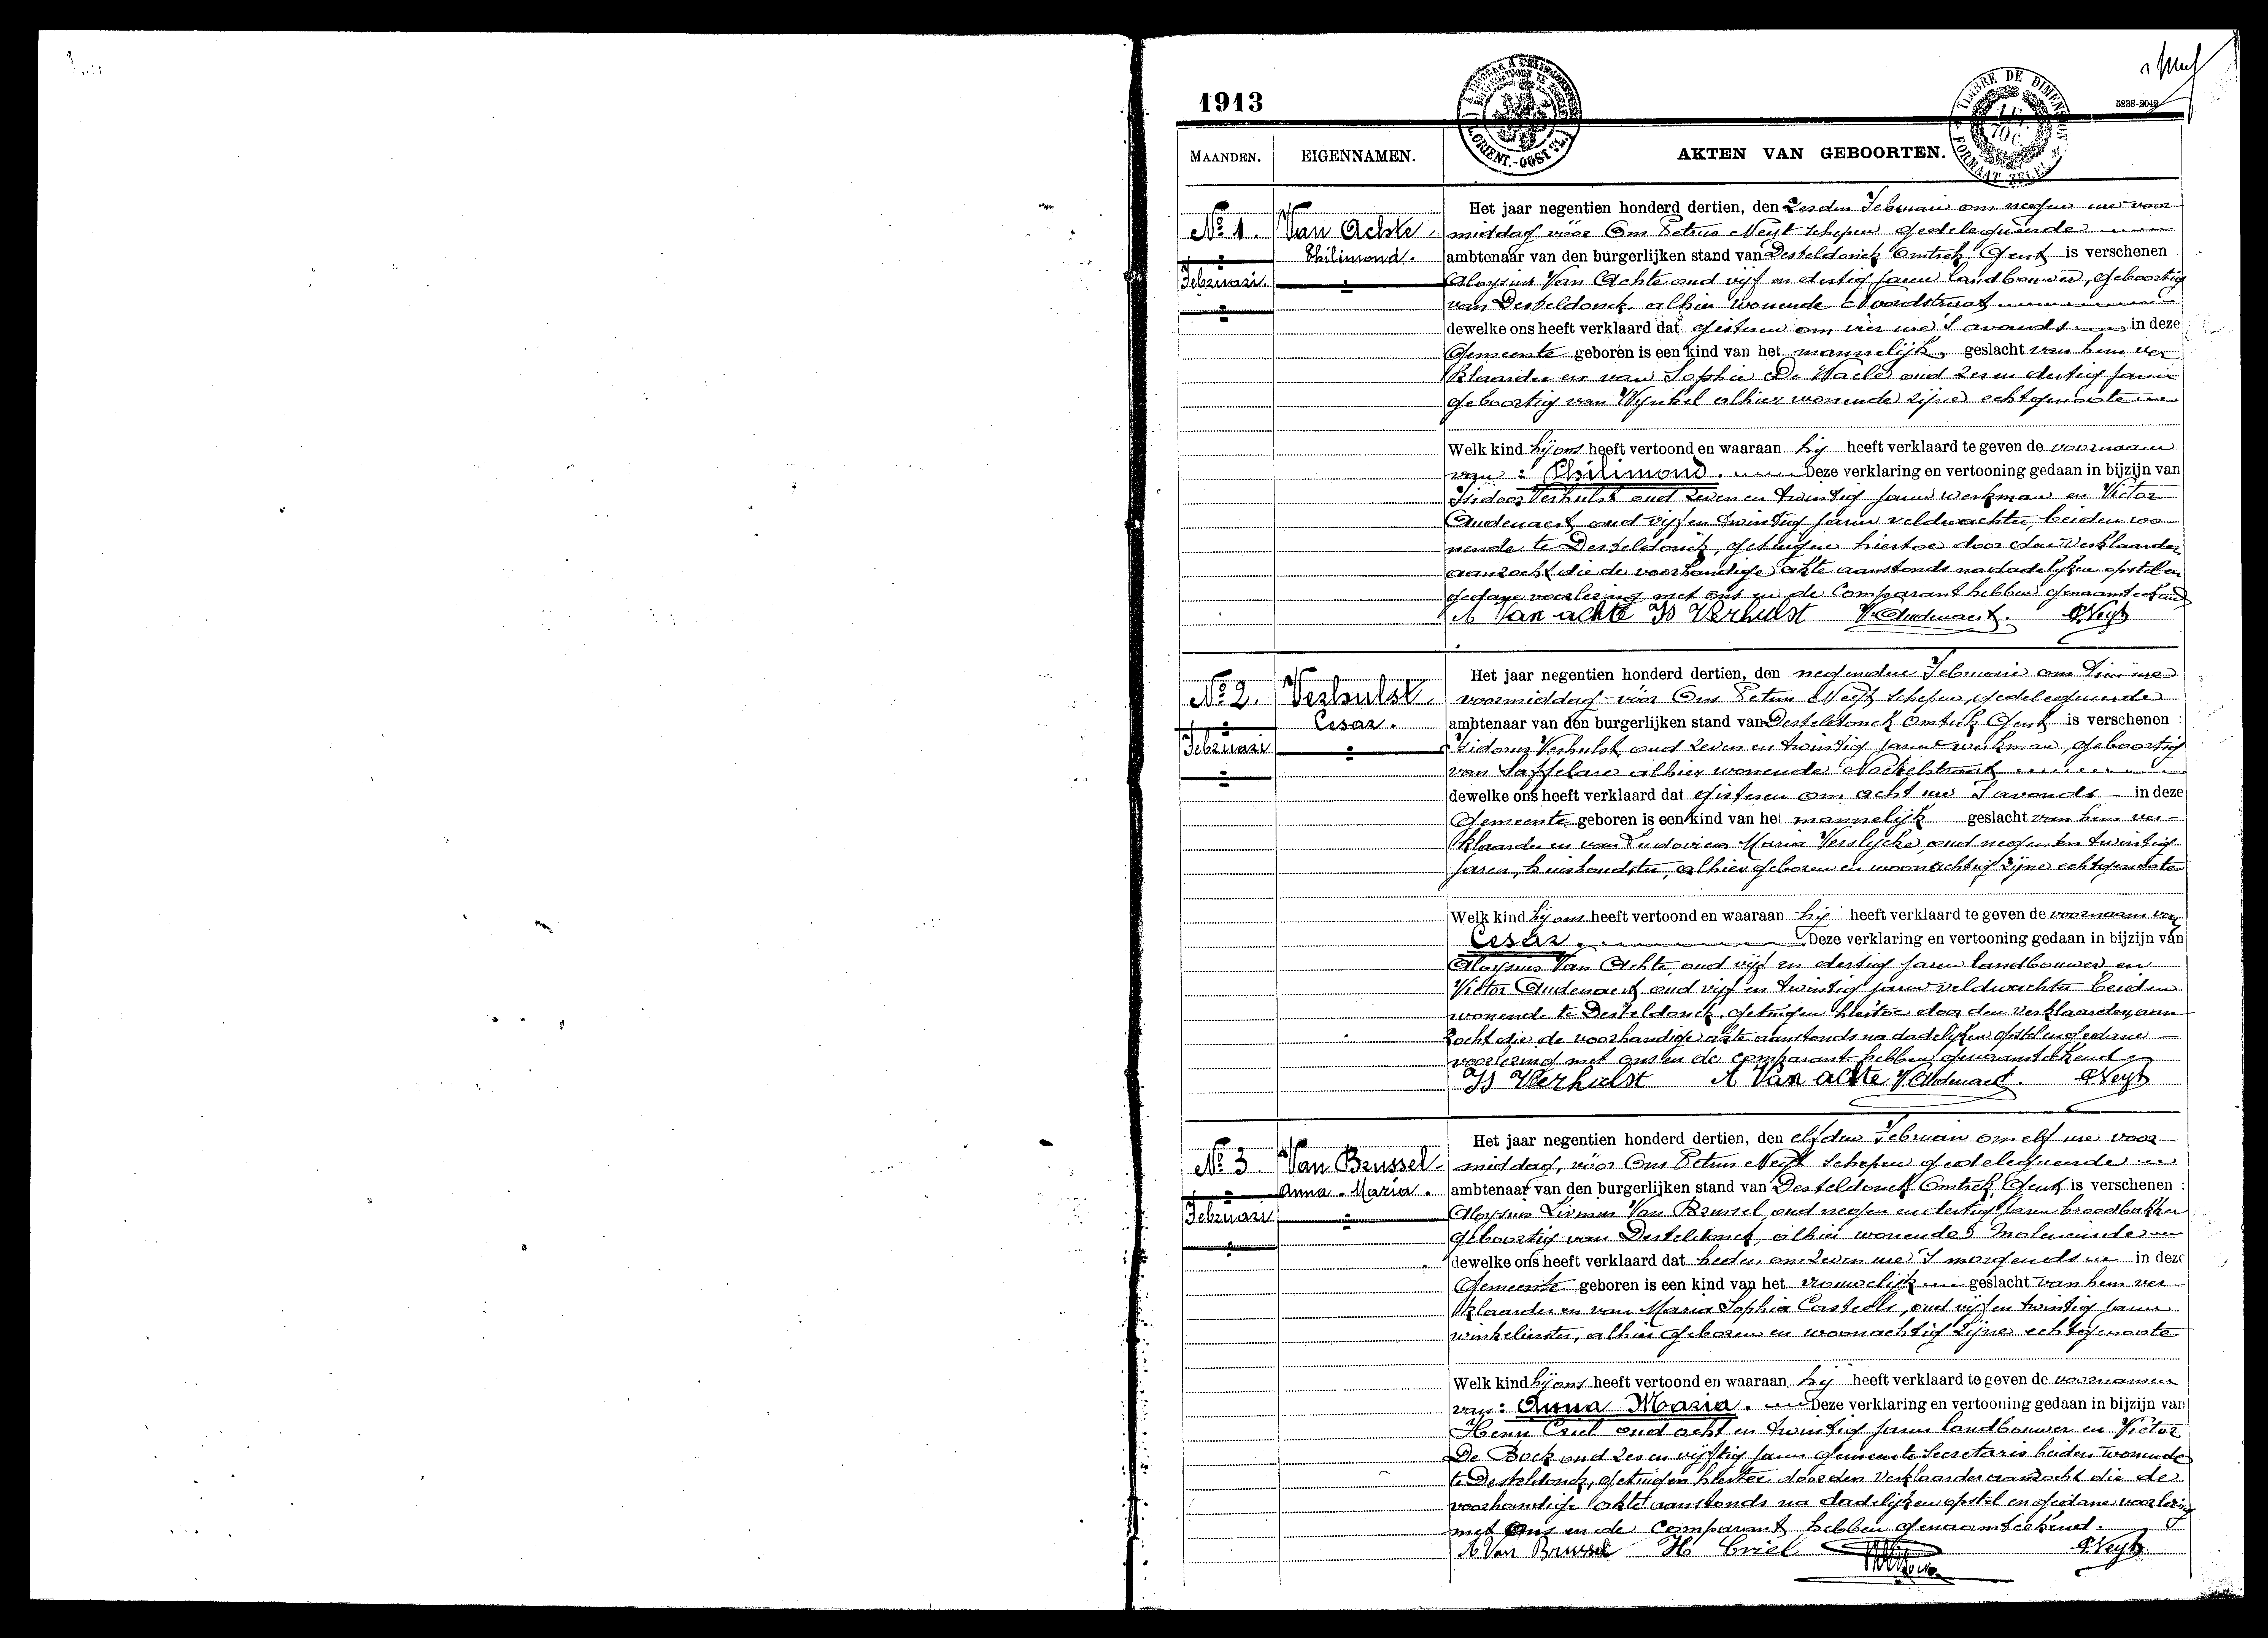 1913
5238-2042
TIMBRE DE DIMENSION
FORMAAT ZEGEL
ORIENT.-OOST VL.
MAANDEN. EIGENNAMEN. AKTEN VAN GEBOORTEN.
Het jaar negentien honderd dertien, den zesden Februari om negen ure voor-
No. 1. Van Achte. middag vóór Ons Petrus Neyt schepen gedelegueerde
Philimond. ambtenaar van den burgerlijken stand van Desteldonck Omtrek Gent is verschenen
Februari Aloysius Van Achte oud vijf en dertig jaren landbouwer, geboortig
van Desteldonck alhier wonende Noordstraat
dewelke ons heeft verklaard dat gisteren om vier ure 's avonds in deze
Gemeente geboren is een kind van het mannelijk geslacht van hem ver-
klaarder en van Sophie De Waele oud zes en dertig jaren
geboortig van Wynkel alhier wonende zijne echtgenoote
Welk kind hij ons heeft vertoond en waaraan hij heeft verklaard te geven de voornaam
van: Philimond. Deze verklaring en vertooning gedaan in bijzijn van
Isidoor Verhulst oud zeven en twintig jaren werkman en Victor
Audenaert oud vijf en twintig jaren veldwachter, beiden wo-
nende te Desteldonck, getuigen hiertoe door den Verklaarder
aanzocht die de voorhandige akte aanstonds na dadelijken opstel en
gedane voorlezing met ons en de Comparant hebben genaamteekend
A Van achte Is Verhulst V. Audenaert. P Neyt
Het jaar negentien honderd dertien, den negenden Februari om tien ure
No. 2. Verhulst. voormiddag vóór Ons Petrus Neyt schepen, gedelegueerde
Cesar. ambtenaar van den burgerlijken stand van Desteldonck Omtrek Gent is verschenen :
Februari Isidorus Verhulst oud zeven en twintig jaren werkman, geboortig
van Saffelare alhier wonende
dewelke ons heeft verklaard dat gisteren om acht ure 's avonds in deze
Gemeente geboren is een kind van het mannelijk geslacht van hem ver-
klaarder en van Ludovica Maria Verslycke, oud negen en twintig
jaren, huishoudster, alhier geboren en woonachtig zijne echtgenoote
Welk kind hij ons heeft vertoond en waaraan hij heeft verklaard te geven de voornaam van
Cesar. Deze verklaring en vertooning gedaan in bijzijn van
Aloysius Van Achte, oud vijf en dertig jaren landbouwer en
Victor Audenaert oud vijf en twintig jaren veldwachter beiden
wonende te Desteldonck, getuigen hiertoe door den Verklaarder, aan-
zocht die de voorhandige akte aanstonds na dadelijken opstel en gedane
voorlezing met ons en de comparant hebben genaamteekend
Is Verhulst A Van achte V. Audenaert. P Neyt
Het jaar negentien honderd dertien, den elfden Februari om elf ure voor-
No. 3 Van Brussel. middag, vóór Ons Petrus Neyt schepen gedelegueerde
Anna-Maria. ambtenaar van den burgerlijken stand van Desteldonck Omtrek Gent is verschenen :
Februari Aloysius Livinus Van Brussel, oud negen en dertig jaren broodbakker
geboortig van Desteldonck, alhier wonende Moleneinde
dewelke ons heeft verklaard dat heden om zeven ure 's morgends in deze
Gemeente geboren is een kind van het vrouwelijk geslacht van hem ver-
klaarder en van Maria Sophia Casteels, oud vijf en twintig jaren
winkelierster, alhier geboren en woonachtig zijne echtgenoote
Welk kind hij ons heeft vertoond en waaraan hij heeft verklaard te geven de voornamen
van: Anna Maria. Deze verklaring en vertooning gedaan in bijzijn van
Henri Criel oud acht en twintig jaren landbouwer en Victor
De Bock oud zes en vijftig jaren gemeente Secretaris beiden wonende
te Desteldonck, getuigen hiertoe door den Verklaarder aanzocht die de
voorhandige akte aanstonds na dadelijken opstel en gedane voorlezing
met Ons en de Comparant hebben genaamteekend.
A Van Brussel H Criel P Neyt